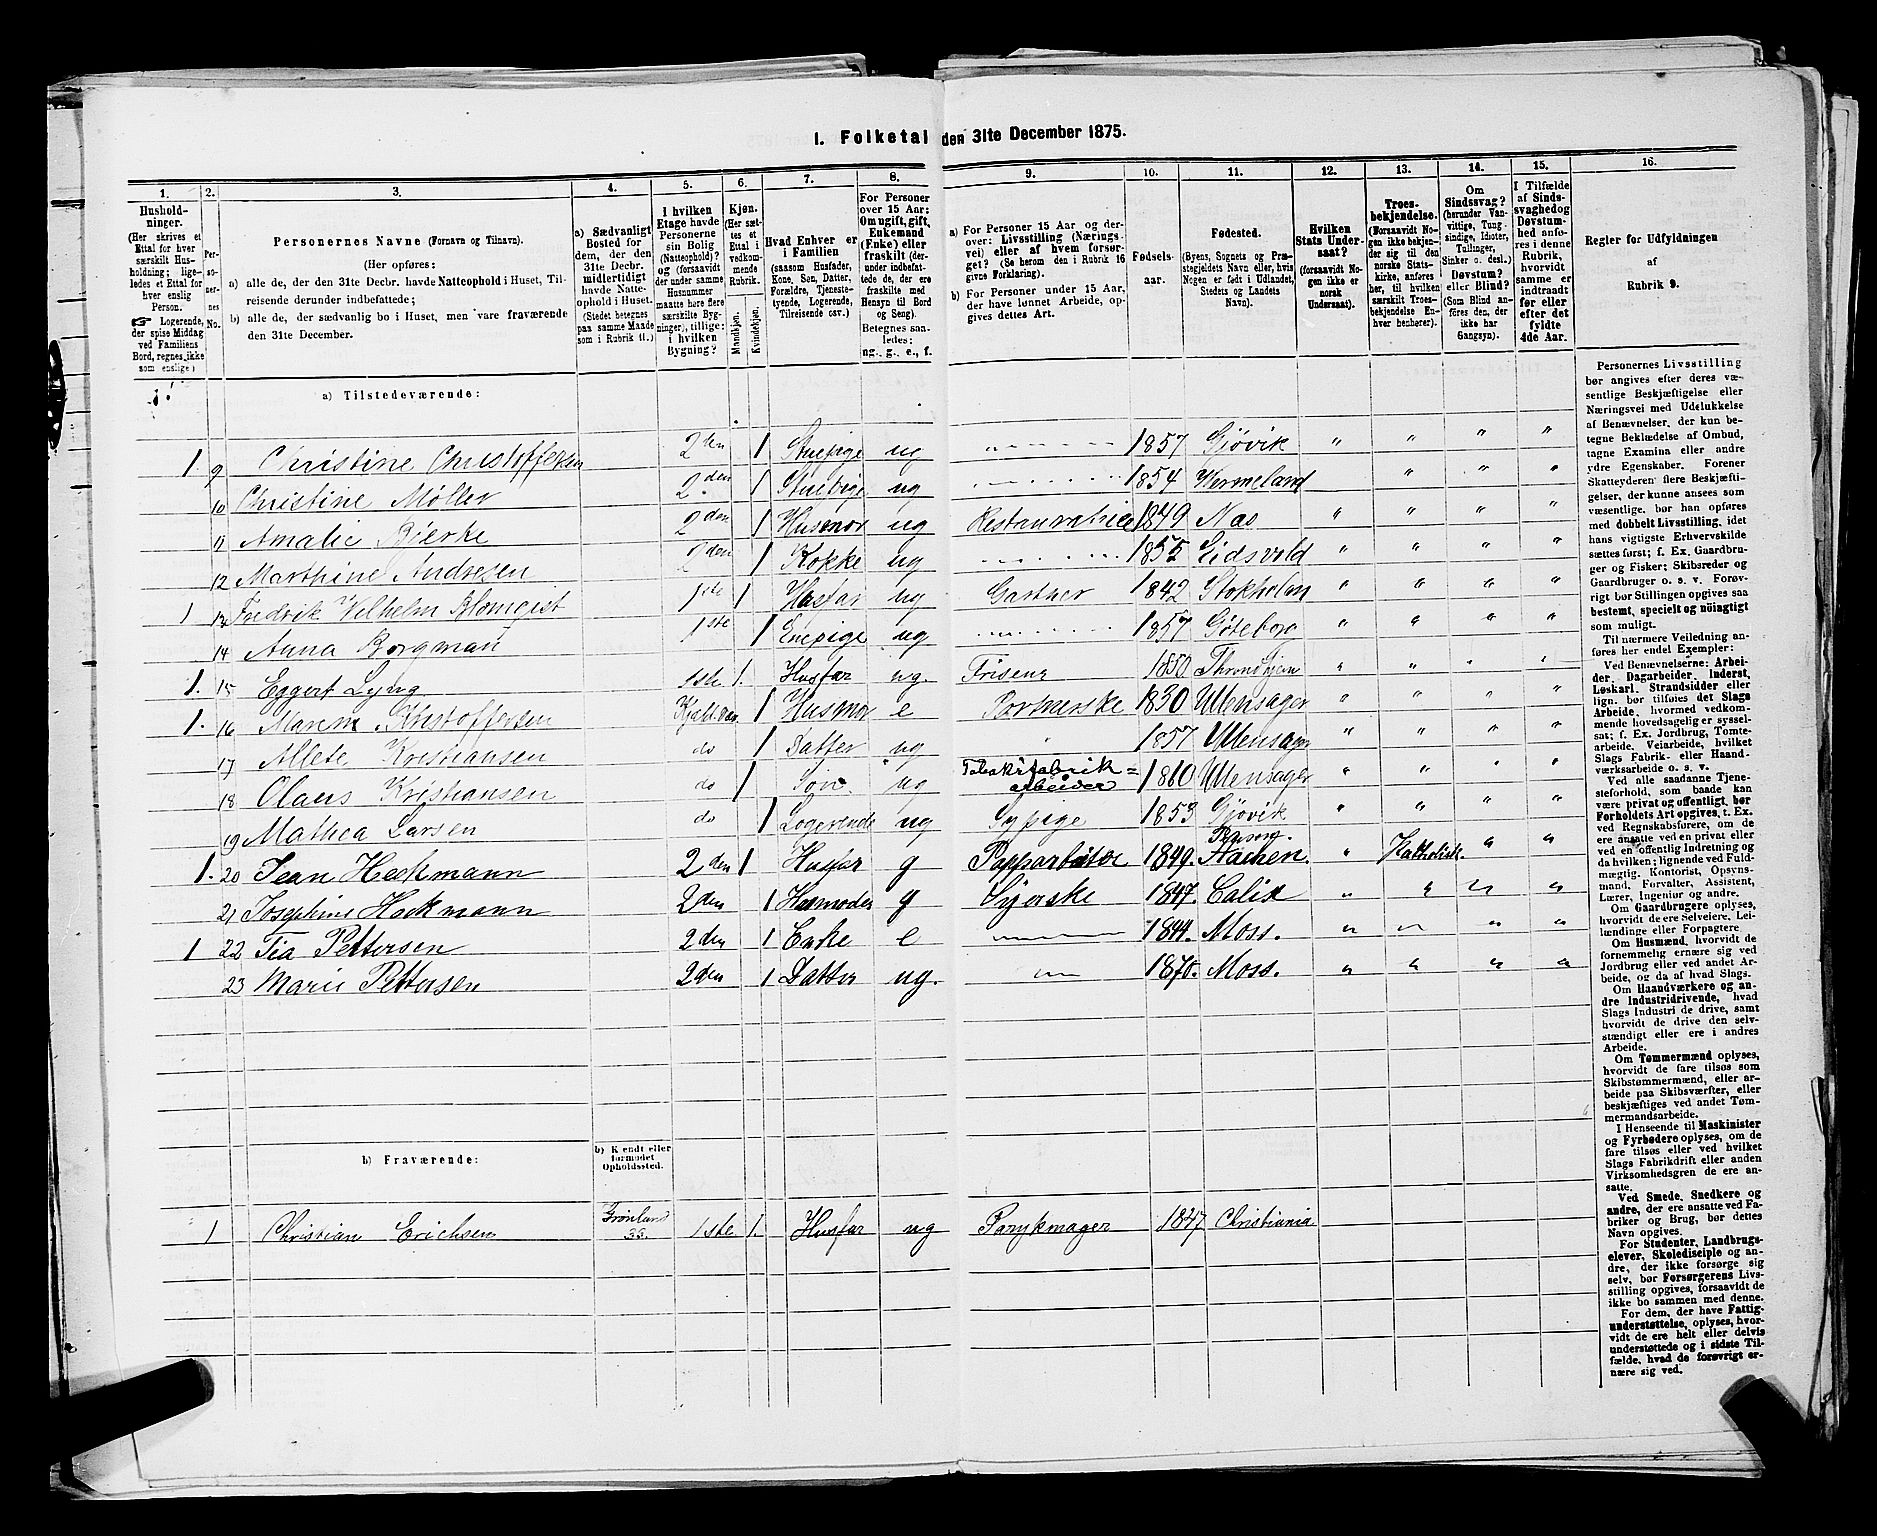 I. Folketal den 31te December 1875.
1. 2. 3. 4. 5. 6. 7. 8. 9. 10. 11. 12. 13. 14. 15. 16.
Husholdninger. (Her skrives et Ettal for hver særskilt Husholdning; ligeledes et Ettal for hver enslig Person. ☞ Logerende, der spise Middag ved Familiens Bord, regnes ikke som enslige)
Personernes No.
Personernes Navne (Fornavn og Tilnavn).
(Her opføres:
a) alle de, der den 31te Decbr. havde Natteophold i Huset, Tilreisende derunder indbefattede;
b) alle de, der sædvanlig bo i Huset, men vare fraværende den 31te December.
a) Sædvanligt Bosted for dem, der den 31te Decbr. midlertidigt havde Natteophold i Huset. (Stedet betegnes paa samme Maade som i Rubrik 11.)
I hvilken Etage havde Personerne sin Bolig (Natteophold)? og (forsaavidt der under samme Husnummer maatte høre flere særskilte Bygninger), tillige: i hvilken Bygning?
Kjøn. (Her sættes et Ettal i vedkommende Rubrik. Mandkjøn. Kvindekjøn.
Hvad Enhver er i Familien (saasom Husfader, Kone, Søn, Datter, Forældre, Tjenestetyende, Logerende, Tilreisende osv.)
For Personer over 15 Aar: Om ugift, gift, Enkemand (Enke) eller fraskilt (derunder indbefattede de, der ere fraskilte med Hensyn til Bord og Seng). Betegnes saaledes: ug., g., e., f.
a) For Personer 15 Aar og derover: Livsstilling (Næringsvei) eller af hvem forsørget? (Se herom den i Rubrik 16 givne Forklaring).
b) For Personer under 15 Aar, der have lønnet Arbeide, opgives dettes Art.
Fødselsaar.
Fødested. (Byens, Sognets og Præstegjeldets Navn eller, hvis Nogen er født i Udlandet, Stedets og Landets Navn).
Hvilken Stats Undersaat? (forsaavidt Nogen ikke er norsk Undersaat).
Troesbekjendelse. (Forsaavidt Nogen ikke bekjender sig til den norske Statskirke, anføres her, til hvilken særskilt Troesbekjendelse Enhver henhører).
Om Sindssvag? (herunder Vanvittige, Tungsindige, Idioter, Tullinger, Sinker o. desl.) Døvstum? eller Blind? (Som Blind anføres den, der ikke har Gangsyn).
I Tilfælde af Sindssvaghed og Døvstumhed anføres i denne Rubrik, hvorvidt samme er indtraadt før eller efter det fyldte 4de Aar.
Regler for Udfyldningen af Rubrik 9.
a) Tilstedeværende:
1. 9 Christine Christoffersen 2den 1 Stuepige ug " 1857 Gjövik " " " "
10 Christine Møller 2den 1 Stuepige ug 1854 Wermeland " " "
11 Amalie Bjerke 2den 1 Husmor ug 1849 Nas " " " "
12 Marthine Andresen 2den 1 Kokke ug 1855 Eidsvold " " " "
1 13 Fredrik Vilhelm Blomqist 1ste 1 Husfar ug Gartner 1842 Stokholm " " " "
14 Anna Borgman 1ste 1 Enepige ug 1857 Göteborg " " " "
1. 15 Eggert Lyng 1ste 1. Husfar ug. Friseur 1850 Throndhjem " " " "
1. 16 Kristoffersen 1 Husmor e 1830 Ullensager " " " "
17 Allete Kristiansen do 1 Datter ug " 1857 Ullensager " " " "
18 Olaus Kristiansen do 1 Søn ug Tobaksfabrik= arbeider 1860 Ullensager " " " "
19 Mathea Larsen do 1 Logerende ug Sypige 1853 Gjövik " " " "
1. 20 Jean Heckmann 2den 1 Husfar g Paparbeider 1849. Aachen. " Katholisk. " "
21 Josephine Heckmann 2den 1 Husmoder g Syerske 1847. Calix " " " "
1 22 Tia Pettersen 2den 1 Enke e 1844. Moss. " " " "
23 Marie Pettersen 2den 1 Datter ug. 1870. Moss. " " " "
b) Fraværende:
b) Kendt eller formodet Opholdssted.
1 Christian Erichsen Grönland 33. 1ste 1. Husfar ug Parykmager 1847 Christiania
Personernes Livsstilling
bør angives efter deres væ-
sentlige Beskjæftigelse eller
Næringsvei med Udelukkelse
af Benævnelser, der kun be-
tegne Beklædelse af Ombud,
tagne Examina eller andre
ydre Egenskaber. Forener
Skatteyderen flere Beskjæfti-
gelser, der kunne ansees som
væsentlige, bør han opføres
med dobbelt Livsstilling, idet
hans vigtigste Erhvervskilde
sættes først; f. Ex. Gaardbru-
ger og Fisker; Skibsreder og
Gaardbruger o. s. v. Forøv-
rigt bør Stillingen opgives saa
bestemt, specielt og nöiagtigt
som muligt.
Til nærmere Veiledning an-
føres her endel Exempler:
Ved Benævnelserne: Arbei-
der, Dagarbeider, Inderst,
Løskarl, Strandsidder eller
lign. bør tilføies det Slags
Arbeide, hvormed vedkom-
mende hovedsagelig er syssel-
sat; f. Ex. Jordbrug, Tomte-
arbeide, Veiarbeide, hvilket
Slags Fabrik- eller Haand-
værksarbeide o. s. v.
Ved alle saadanne Tjene-
steforhold, som baade kan
være privat og offentligt, bør
Forholdets Art opgives, t. Ex.
ved Regnskabsførere, om de
ere ansatte ved en privat eller
ved en offentlig Indretning og
da hvilken; lignende ved Fuld-
mægtig, Kontorist, Opsyns-
mand, Forvalter, Assistent,
Lærer, Ingeniør og andre.
Om Gaardbrugere oplyses,
hvorvidt de ere Selveiere, Lei-
lændinge eller Forpagtere
Om Husmænd, hvorvidt de
fornemmelig ernære sig ved
Jordbrug eller ved andet Ar-
beide, og da af hvad Slags.
Om Haandværkere og an-
dre Industridrivende, hvad
Slags Industri de drive, samt
hvorvidt de drive den selv-
stændigt eller ere i andres
Arbeide.
Om Tømmermænd oplyses,
hvorvidt de fare tilsøs som
Skibstømmermænd, eller ar-
beide paa Skibsværfter, eller
beskjæftiges ved andet Tøm-
mermandsarbeide.
I Henseende til Maskinister
og Fyrbødere oplyses, om de
fare tilsøs eller ved hvilket
Slags Fabrikdrift eller anden
Virksomhedsgren de ere an-
satte.
Ved Smede, Snedkere og
andre, der ere ansatte ved Fa-
briker og Brug, bør dettes
Navn opgives.
For Studenter, Landbrugs-
elever, Skoledisciple og an-
dre, der ikke forsørge sig
selv, bør Forsørgerens Livs-
stilling opgives, forsaavidt de
ikke bo sammen med denne.
For dem, der have Fattig-
understøttelse, oplyses, hvor-
vidt de ere helt eller delvis
understøttede og i sidste Til-
fælde, hvad de forøvrigt er-
nære sig ved.